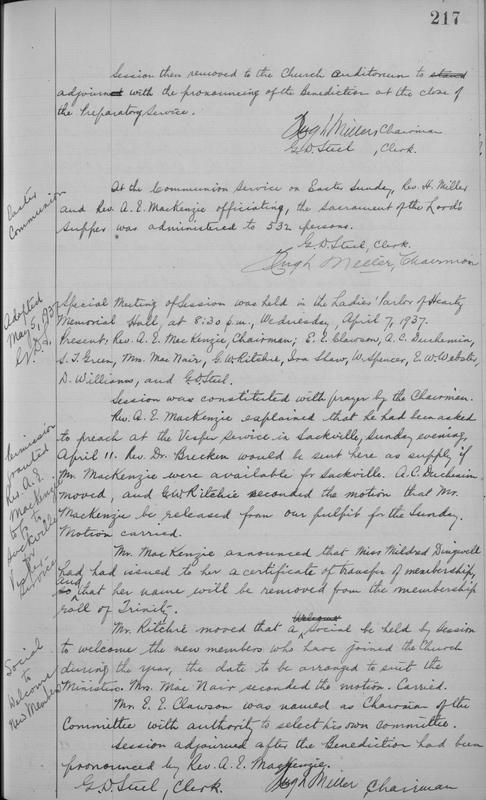 217
Session then removed to the Church auditorium to stand
adjourned with the pronouncing of the Benediction at the close of
the Preparatory Service.
Hugh Miller, Chairman
G.D. Steel, Clerk.
Easter
Communion
At the Communion Service on Easter Sunday, Rev. H. Miller
and Rev. A. E. MacKenzie officiating, the Sacrament of the Lord's
Supper was administered to 532 persons.
G.D. Steel, Clerk.
Hugh Miller, Chairman
Adopted
May 5, 1937
G.D.S.
Special Meeting of Session was held in the Ladies' Parlor of Heartz
Memorial Hall, at 8:30 p.m., Wednesday, April 7, 1937.
Present: Rev. A. E. MacKenzie, Chairman; E. E. Clawson, A. C. Duchemin,
S. T. Green, Mrs. MacNair, G. W. Ritchie, Ira Shaw, W. Spencer, E. W. Webster,
D. Williams, and G.D. Steel.
Session was constituted with prayer by the Chairman.
Permission
granted
Rev. A. E.
MacKenzie
to go to
Sackville
for
Vesper
Service
Rev. A. E. MacKenzie explained that he had been asked
to preach at the Vesper Service in Sackville, Sunday evening,
April 11. Rev. Dr. Brecken would be sent here as supply if
Mr. MacKenzie were available for Sackville. A. C. Duchemin
moved, and G.W. Ritchie seconded the motion that Mr.
MacKenzie be released from our pulpit for the Sunday.
Motion carried.
Mr. MacKenzie announced that Miss Mildred Dingwell
had had issued to her a certificate of transfer of membership,
and
so that her name will be removed from the membership
roll of Trinity.
Social
to
Welcome
New Members
Welcome
Mr. Ritchie moved that a Social be held by Session
to welcome the new members who have joined the Church
during the year, the date to be arranged to suit the
Minister. Mrs. MacNair seconded the motion. Carried.
Mr. E. E. Clawson was named as Chairman of the
Committee with authority to select his own Committee.
Session adjourned after the Benediction had been
pronounced by Rev. A. E. MacKenzie.
G.D. Steel, Clerk. Hugh Miller Chairman